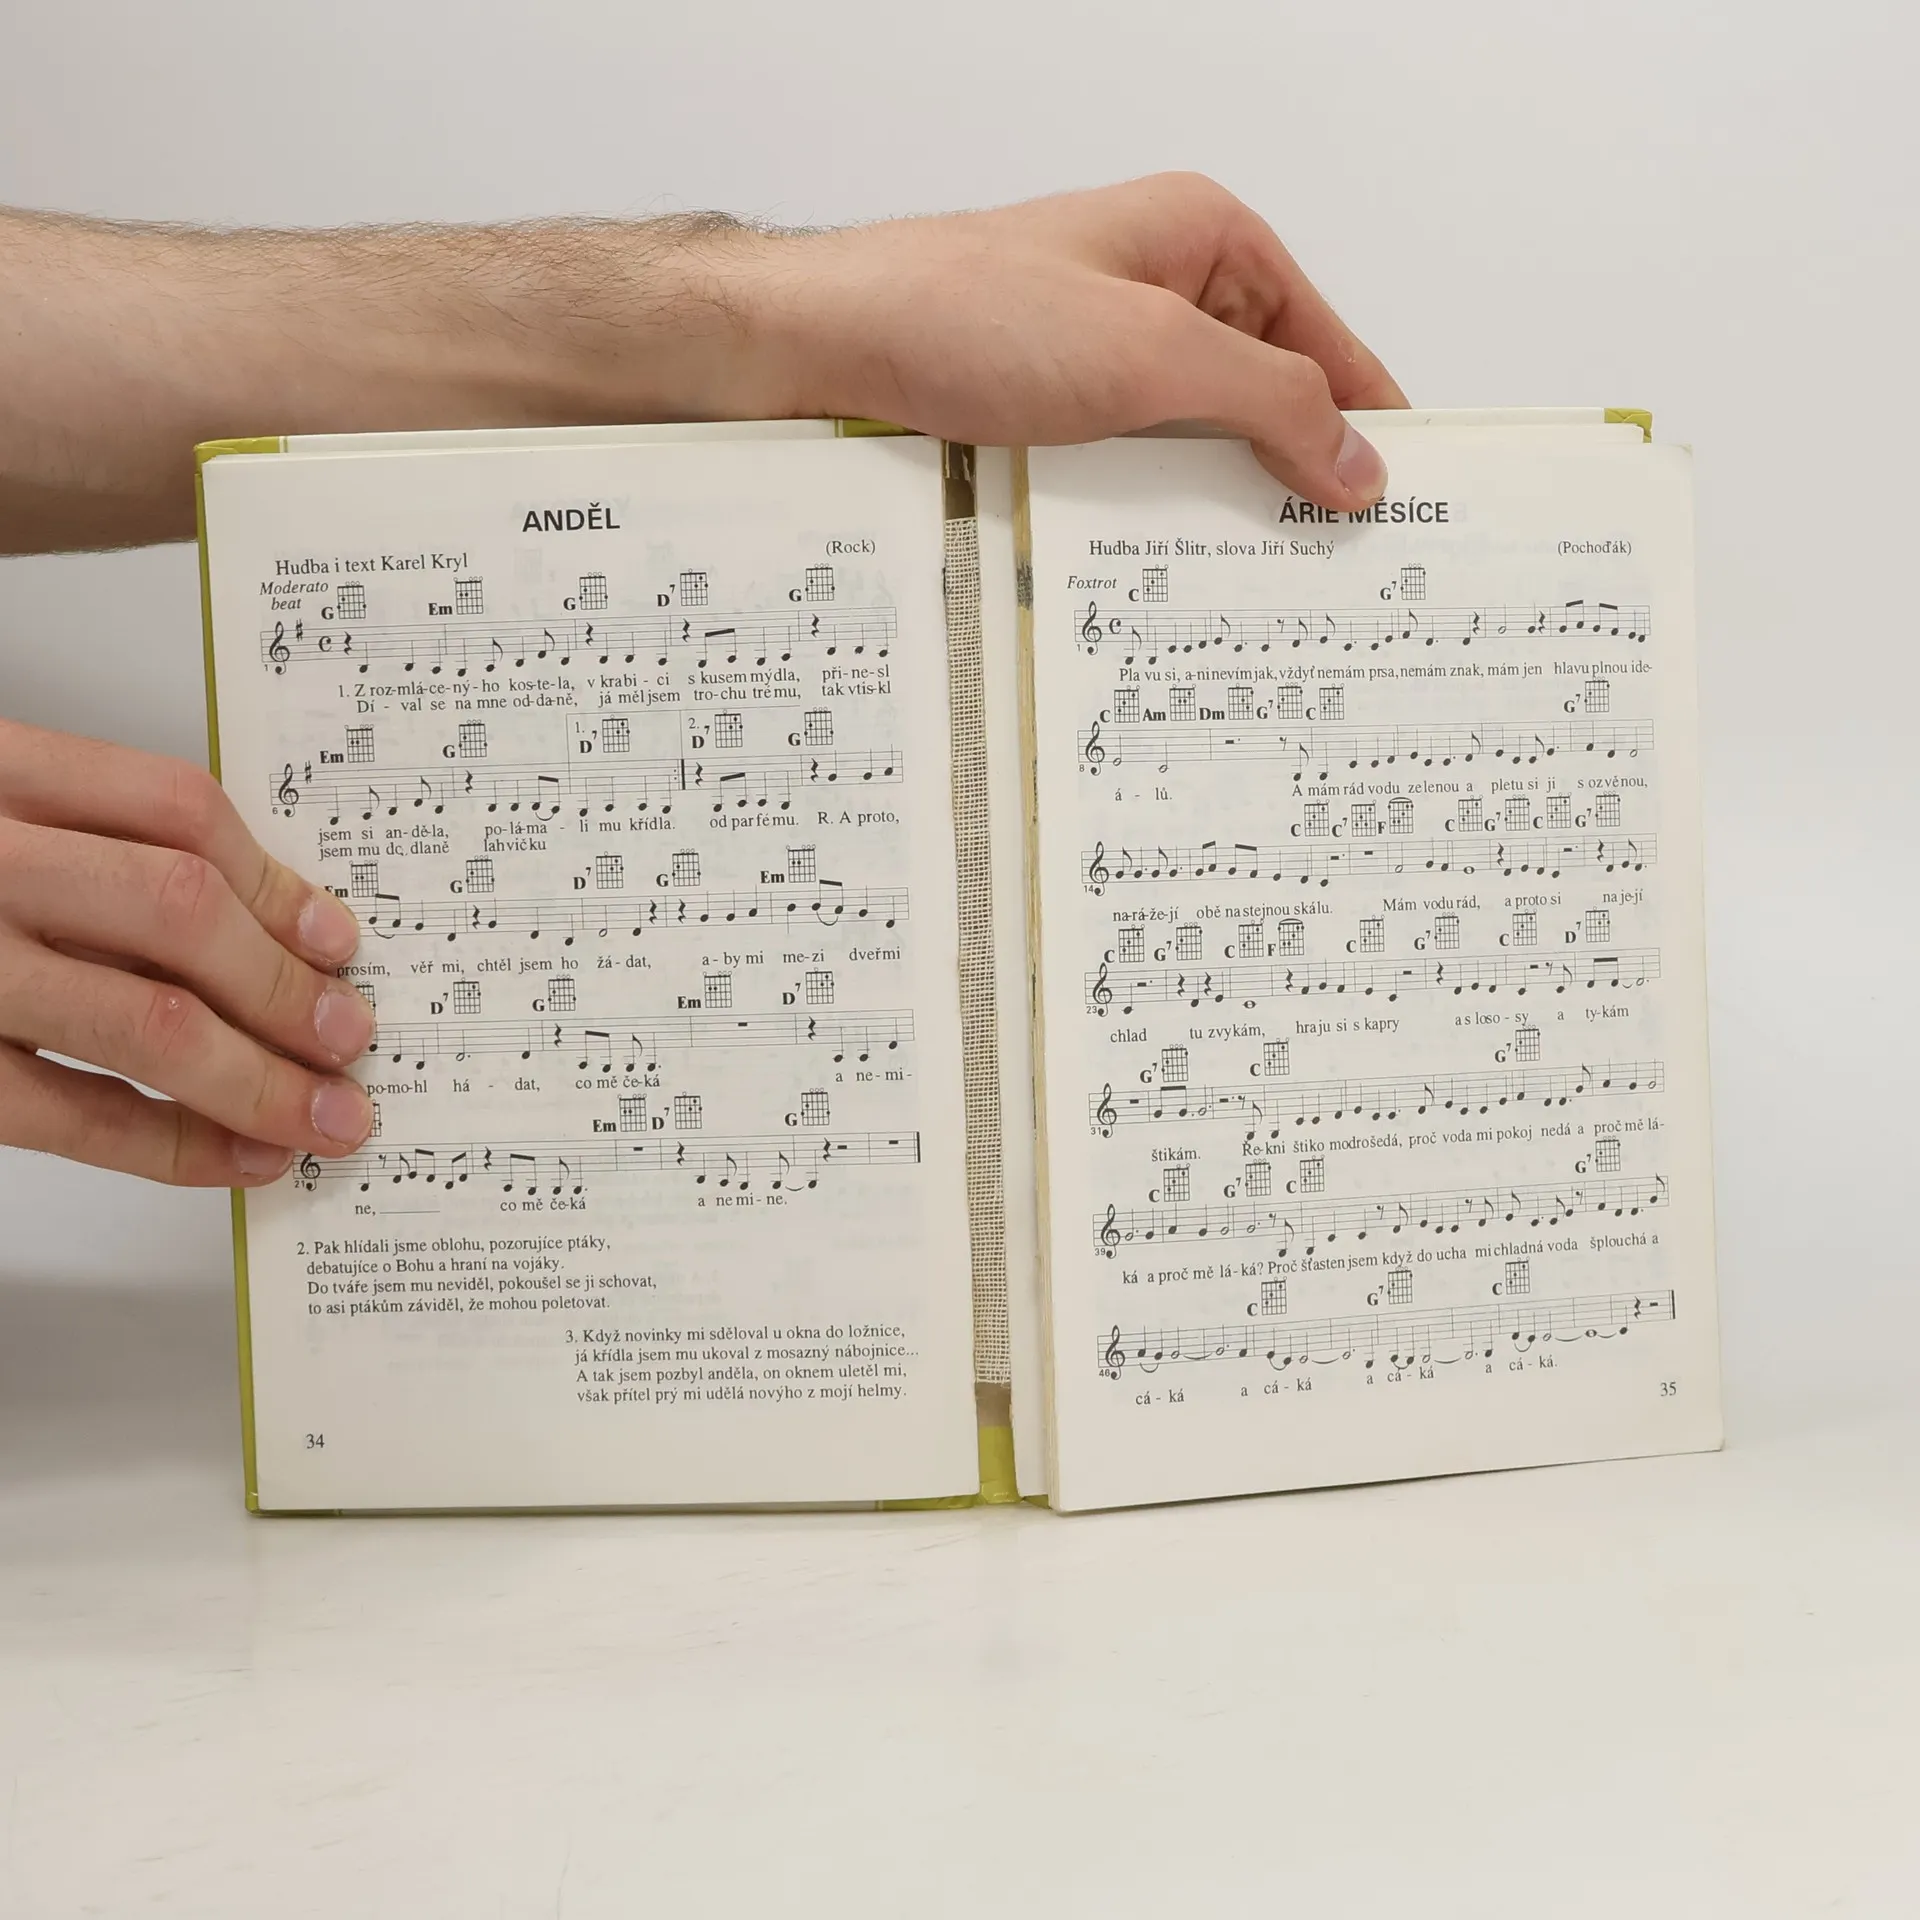 ANDĚL
Hudba i text Karel Kryl
(Rock)
Moderato
beat
G Em G D7 G
1. Z roz-mlá-ce-ný-ho kos-te-la, v krabi - ci s kusem mýdla, při-ne-sl
Dí - val se na mne od-da-ně, já měl jsem tro-chu trému, tak vtis-kl
Em G 1. D7 2. D7 G
6
jsem si an-dě-la, po-lá-ma - li mu křídla. od parfému. R. A proto,
jsem mu do dlaně lahvičku
Em G D7 G Em
prosím, věř mi, chtěl jsem ho žá-dat, a-by mi me-zi dveřmi
D7 G Em D7
po-mo-hl há - dat, co mě če-ká a ne-mi-
Em D7 G
21
ne, co mě če-ká a ne mi-ne.
2. Pak hlídali jsme oblohu, pozorujíce ptáky,
debatujíce o Bohu a hraní na vojáky.
Do tváře jsem mu neviděl, pokoušel se ji schovat,
to asi ptákům záviděl, že mohou poletovat.
3. Když novinky mi sděloval u okna do ložnice,
já křídla jsem mu ukoval z mosazný nábojnice...
A tak jsem pozbyl anděla, on oknem uletěl mi,
však přítel prý mi udělá novýho z mojí helmy.
34
ÁRIE MĚSÍCE
Hudba Jiří Šlitr, slova Jiří Suchý
(Pochoďák)
Foxtrot
C G7
1
Pla vu si, a-ni nevím jak, vždyť nemám prsa, nemám znak, mám jen hlavu plnou ide-
C Am Dm G7 C G7
8
á - lů. A mám rád vodu zelenou a pletu si ji s ozvěnou,
C C7 F C G7 C G7
14
na-rá-že-jí obě na stejnou skálu. Mám vodu rád, a proto si na je-jí
C G7 C F C G7 C D7
23
chlad tu zvykám, hraju si s kapry a s loso - sy a ty-kám
G7 C G7
31
štikám. Ře-kni štiko modrošedá, proč voda mi pokoj nedá a proč mě lá-
C G7 C G7
39
ká a proč mě lá-ká? Proč šťasten jsem když do ucha mi chladná voda šplouchá a
C G7 C
46
cá - ká a cá - ká a cá - ká a cá - ká.
35